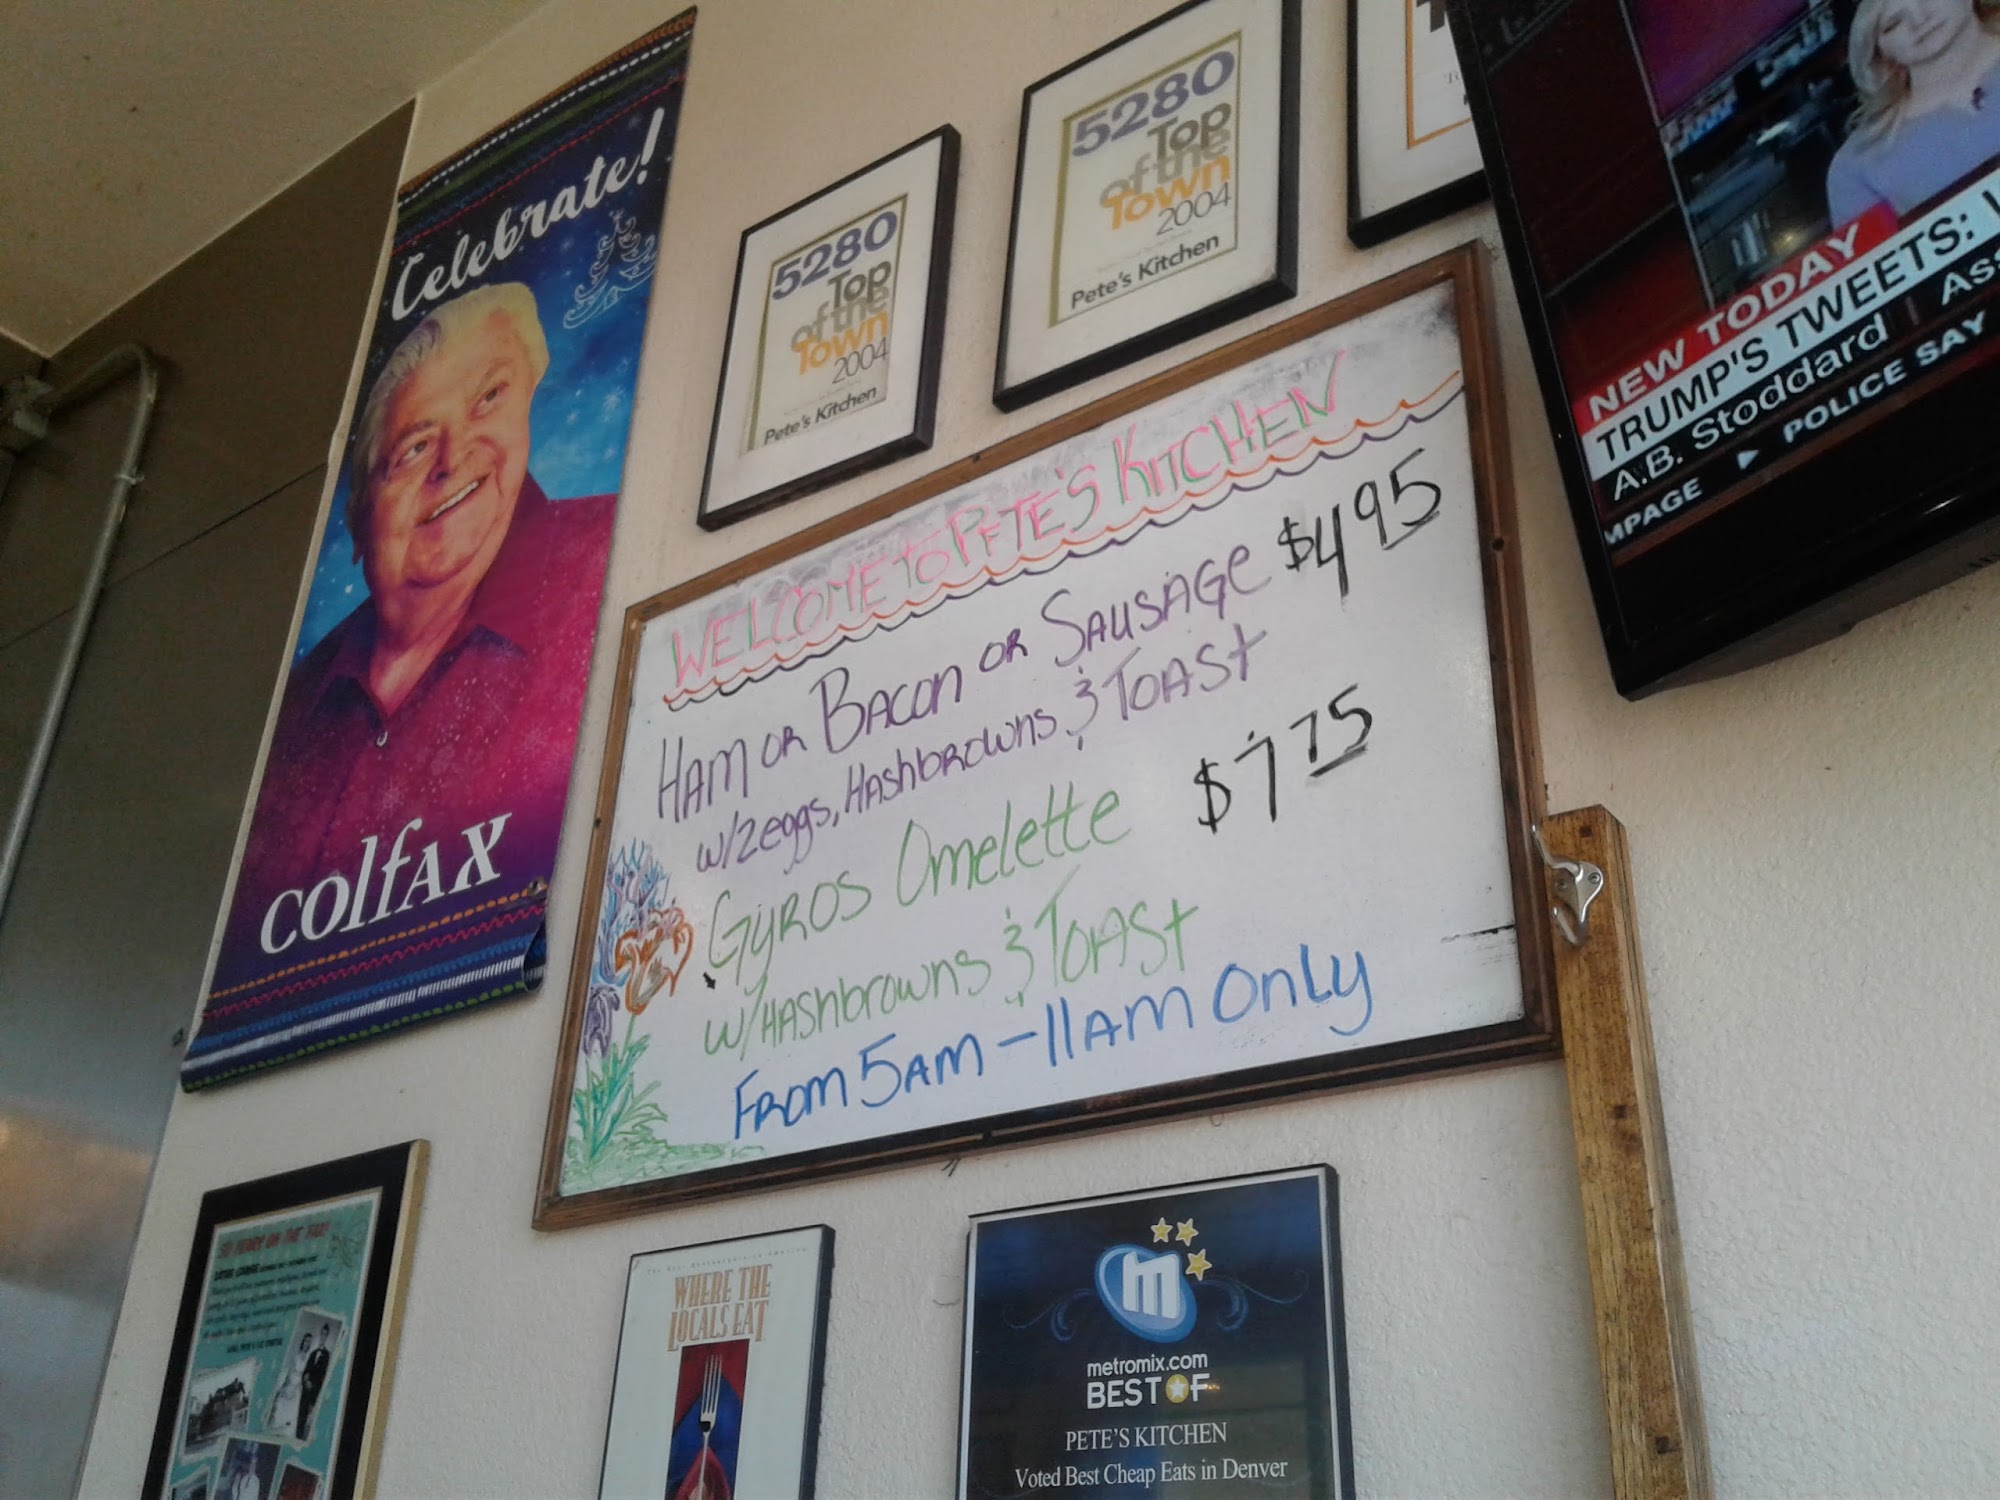 Celebrate!
COlfAX
5280
Top
of the
Town
2004
Pete's Kitchen
5280
Top
of the
Town
2004
Pete's Kitchen
NEW TODAY
TRUMP'S TWEETS:
A.B. Stoddard
MPAGE ▶ POLICE SAY
WELCOME TO PETE'S KITCHEN
HAM OR BACON OR SAUSAGE $4 95
w/2 eggs, HAShbROWns & TOASt
GYROS Omelette $7 75
w/HAShbrowns & TOASt
FROM 5AM - 11AM Only
WHERE THE
LOCALS EAT
metromix.com
BEST OF
PETE'S KITCHEN
Voted Best Cheap Eats in Denver